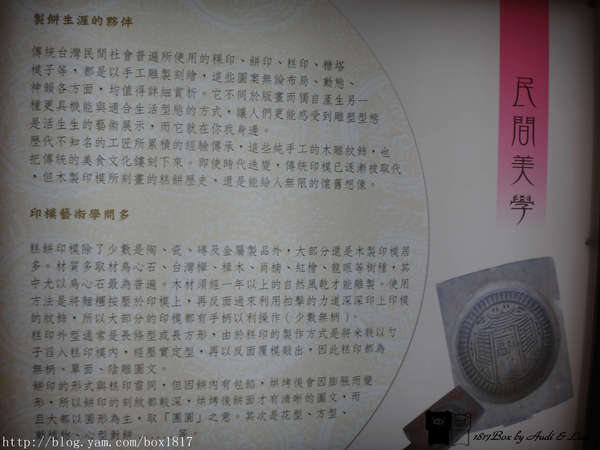 製餅生涯的夥伴
傳統台灣民間社會普遍所使用的粿印、餅印、糕印、糖塔
模子等，都是以手工雕製刻繪，這些圖案無論布局、動態、
神韻各方面，均值得詳細賞析。它不同於版畫而獨自產生另一
種更具機能與適合生活型態的方式，讓人們更能感受到雕塑型態
是活生生的藝術展示，而它就在你我身邊。
歷代不知名的工匠所累積的經驗傳承，這些純手工的木雕紋飾，也
把傳統的美食文化鏤刻下來。即使時代遞變，傳統印模已逐漸被取代
，但木製印模所刻畫的糕餅歷史，還是能給人無限的懷舊想像。
印模藝術學問多
糕餅印模除了少數是陶、瓷、磚及金屬製品外，大部分還是木製印模居
多。材質多取材烏心石、台灣櫸、樟木、肖楠、紅檜、龍眼等樹種，其
中尤以烏心石最為普遍。木材須經一年以上的自然風乾才能雕製。使用
方法是將麵糰按壓於印模上，再反面過來利用拍擊的力道深深印上印模
的紋飾，所以大部分的印模都有手柄以利操作(少數無柄)。
糕印外型通常是長條型或長方形，由於糕印的製作方式是將米穀以勺
子舀入糕印模內，經壓實定型，再以反面覆模敲出，因此糕印都為
無柄、單面、陰雕圖文。
餅印的形式與糕印雷同，但因餅內有包餡，烘烤後會因膨脹而變
形，所以餅印的刻紋都較深，烘烤後餅面才有清晰的圖文，而
且大都以圓形為主，取「團圓」之意。其次是花型、方型、
民間美學
1817Box by Audi &
http://blog.yam.com/box1817